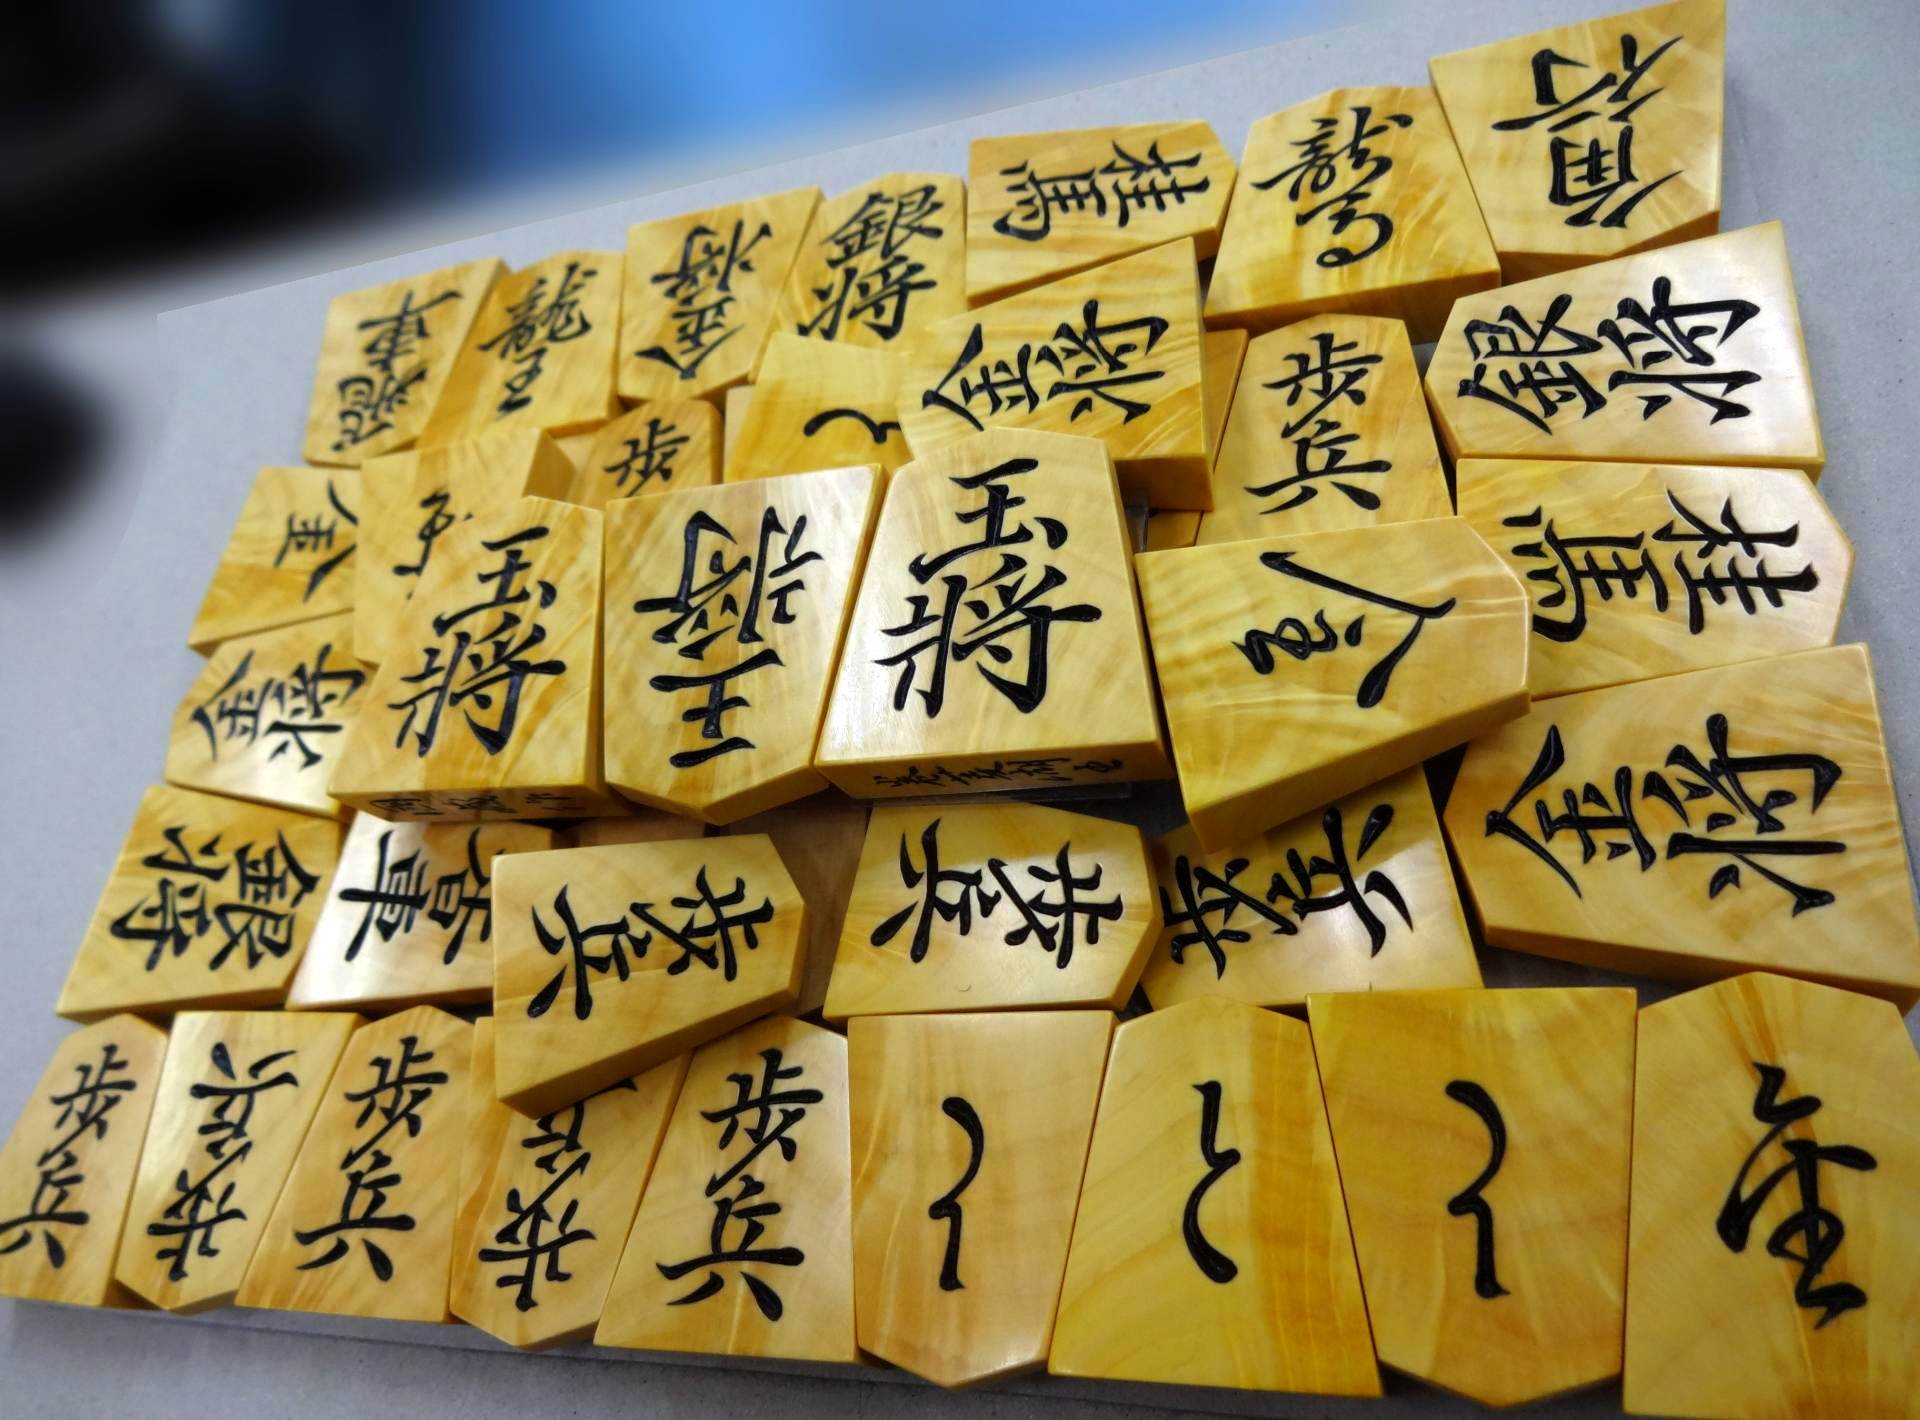 角行
龍馬
桂馬
銀将
金将
龍王
飛車
銀将
歩兵
金将
と
歩
桂馬
王将
玉将
王将
金将
金将
歩兵
歩兵
歩兵
香車
銀将
歩兵
歩兵
歩兵
歩兵
歩兵
と
と
と